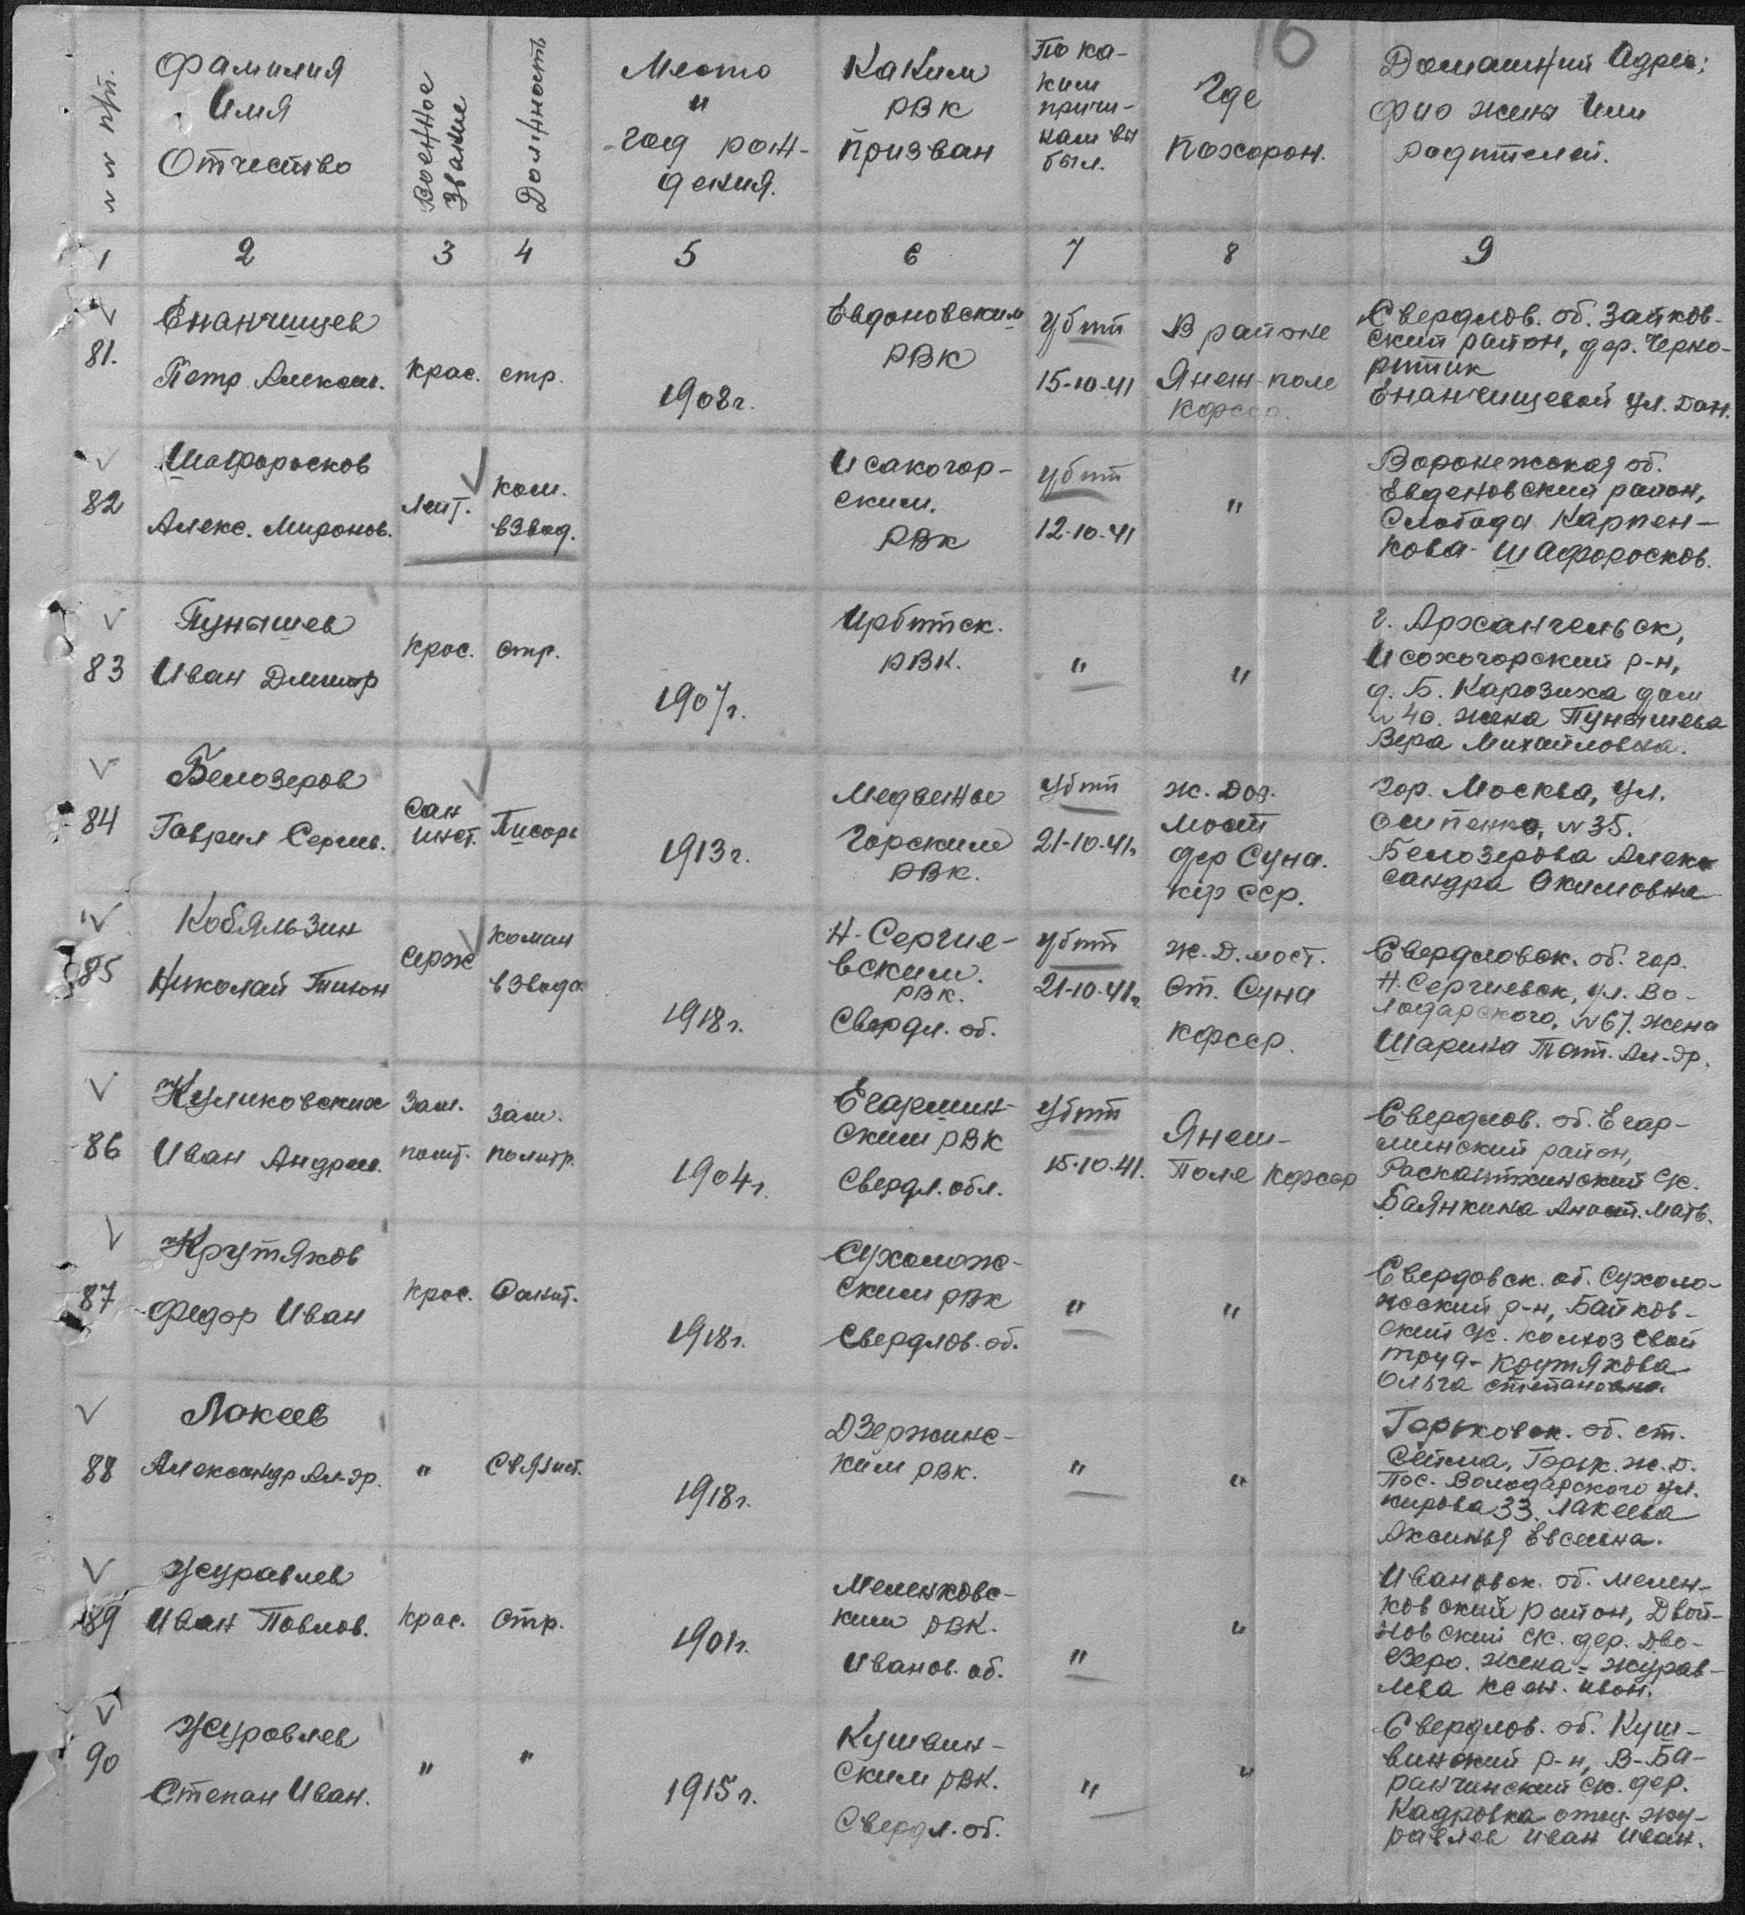 16
№№ п/п.
Фамилия
Имя
Отчество
Военное
звание
Должность
Место
и
год рож-
дения.
Каким
РВК
призван
По ка-
ким
причи-
нам вы
был.
Где
похорон.
Домашний Адрес;
фио жены или
родителей.
1 2 3 4 5 6 7 8 9
81.
Енанчищев
Петр Алексан.
Крас. стр.
1908г.
Евдоновским
РВК
убит
15-10-41
В районе
Янеш-поле
Кфсср.
Свердлов. об. Зайков-
ский район, дер. Черно-
Енанчищевой Ул. Дан.
82
Шафоросков
Алекс. Миронов.
Лейт.
Ком.
взвод.
Исакогор-
ским.
РВК
убит
12-10-41
"
Воронежская об.
Евденовский район,
Слобода Карпен-
кова- Шафоросков.
83
Пунышев
Иван Дмитр
Крас. стр.
1907г.
Ирбитск.
РВК.
"
"
г. Архангельск,
Исохогорский р-н,
д. Б. Карозиха дом
№40. жена Пунышева
Вера Михайловна.
84
Белозеров
Гаврил Сергев.
Сан
инст.
Писарь
1913г.
Медвежье
Горским
РВК.
убит
21-10-41г.
ж. дор.
мост
дер Суна.
кф сср.
гор. Москва, ул.
Осипенко, №35.
Белозерова Алек-
сандра Акимовна
85
Кобяльзин
Николай Тихон
серж
Коман
взвода
1918г.
Н-Сергие-
вским.
РВК.
Свердл. об.
убит
21-10-41г.
ж.д. мост.
ст. Суна
кфсср.
Свердловск. об. гор.
Н. Сергиевск, ул. Во-
лодарского, №67. жена
Шарина Тат. Ал-др.
86
Куликовских
Иван Андрее.
Зам.
полит.
зам.
политр.
1904г.
Егаршин-
ским РВК
Свердл. обл.
убит
15-10-41.
Янеш-
Поле кфсср
Свердлов. об. Егар-
шинский район,
Баянкина Анаст. Матв.
87
Крутяков
Федор Иван
Крас. Санит.
1918г.
Сухолож-
ским РВК
Свердлов. об.
"
"
Свердовск. об. Сухоло-
жский р-н, Байков-
ский с/с. колхоз Свой
труд- Крутякова
Ольга Степановна.
88
Лакеев
Александр Ал-др.
" Связист.
1918г.
Дзержинс-
ким РВК.
"
"
Горьковск. об. ст.
Сейма, Горьк. ж.д.
Пос. Володарского ул.
Кирова 33. Лакеева
Аксинья Евсеевна.
89
Журавлев
Иван Павлов.
Крас. Стр.
1901г.
Меленковс-
ким РВК.
Иванов. об.
"
"
Ивановск. об. Мелен-
ковский район, Двой-
новский с/с. дер. Дво-
зеро. жена- Журав-
лева Ксен. Иван.
90
Журовлев
Степан Иван.
" "
1915г.
Кушвин-
ским РВК.
Свердл. об.
"
"
Свердлов. об. Куш-
винский р-н, В-Ба-
ранчинский с/с. дер.
Кадровка отец Жу-
равлев Иван Иван.